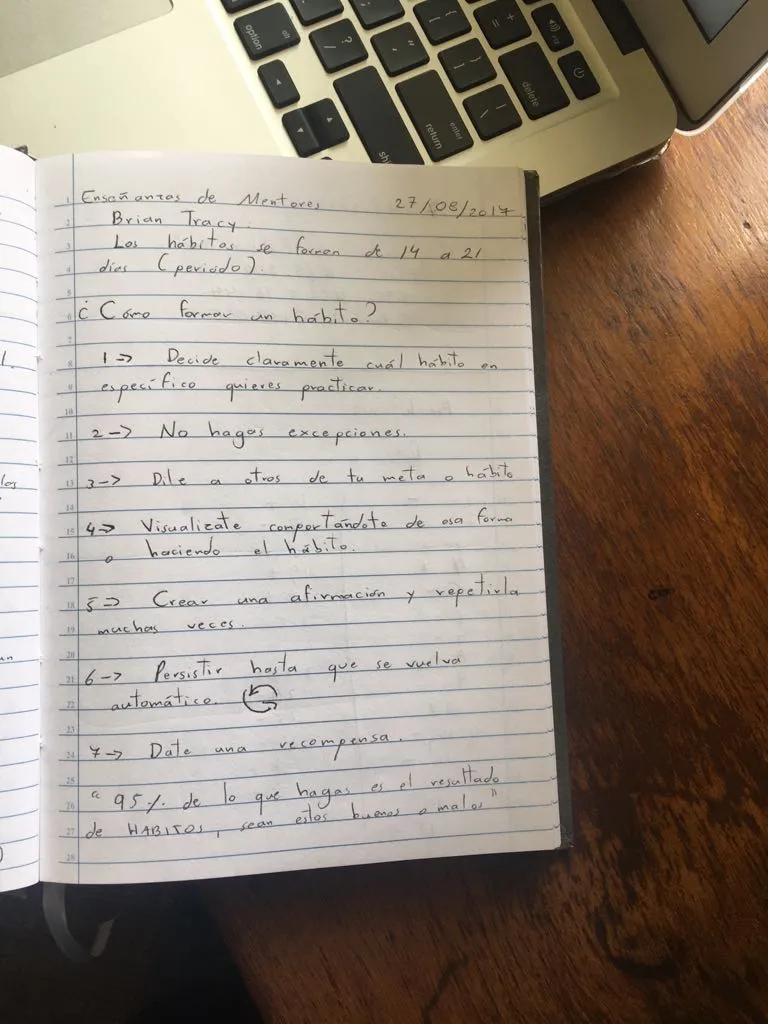 option
alt
? /
" '
{ [
} ]
+ =
| \
delete
enter
return
shi
l.
los
un
)
Enseñanzas de Mentores 27/08/2017
Brian Tracy.
Los hábitos se forman de 14 a 21
días (periodo).
¿Cómo formar un hábito?
1-> Decide claramente cuál hábito en
específico quieres practicar.
2-> No hagas excepciones.
3-> Dile a otros de tu meta o hábito
4-> Visualízate comportándote de esa forma
o haciendo el hábito.
5-> Crear una afirmación y repetirla
muchas veces.
6-> Persistir hasta que se vuelva
automático.
7-> Date una recompensa.
"95% de lo que hagas es el resultado
de HABITOS, sean estos buenos o malos"